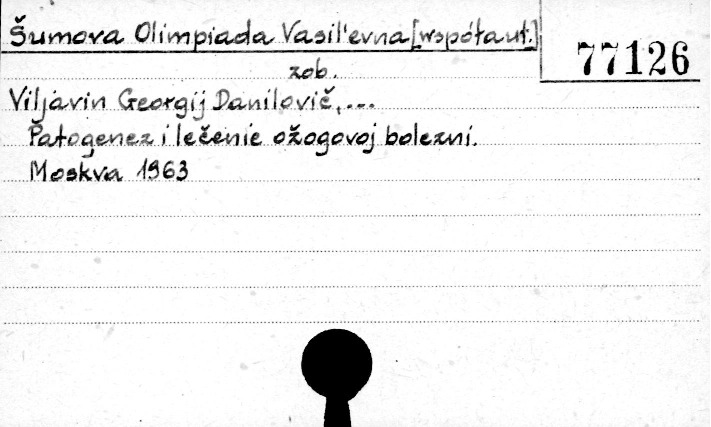 Šumova Olimpiada Vasil'evna [współaut.]
77126
zob.
Viljavin Georgij Danilovič, ...
Patogenez i lečenie ožogovoj bolezni.
Moskva 1963